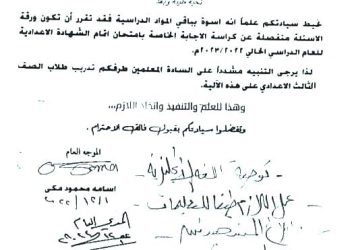 نحيط سيادتكم علماً انه اسوة بباقي المواد الدراسية فقد تقرر أن تكون ورقة
الاسئلة منفصلة عن كراسة الاجابة الخاصة بامتحان اتمام الشهادة الاعدادية
للعام الدراسي الحالي ٢٠٢٣/٢٠٢٢م.
لذا يرجى التنبيه مشدداً على السادة المعلمين طرفكم تدريب طلاب الصف
الثالث الاعدادي على هذه الآلية.
وهذا للعلم والتنفيذ واتخاذ اللازم...
وتفضلوا سيادتكم بقبول فائق الاحترام،
الموجه العام
اسامه محمود مكى
توجيه اللغة الإنجليزية
عمل اللازم طبقا للتعليمات